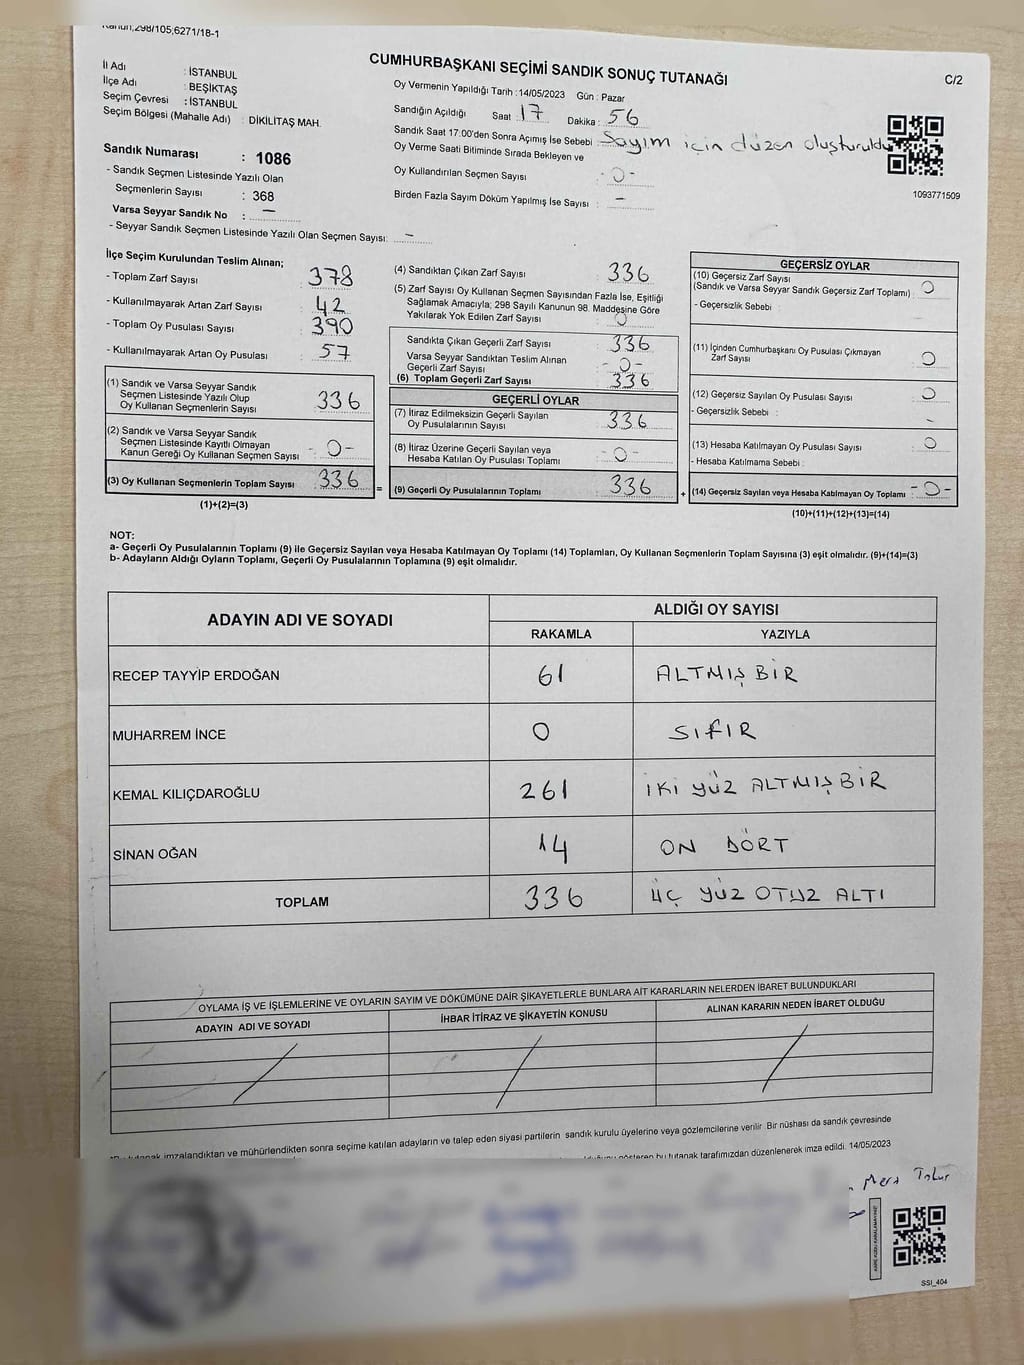 Kanun,298/105,6271/18-1
CUMHURBAŞKANI SEÇİMİ SANDIK SONUÇ TUTANAĞI
C/2
İl Adı : İSTANBUL
İlçe Adı : BEŞİKTAŞ
Seçim Çevresi : İSTANBUL
Seçim Bölgesi (Mahalle Adı) : DİKİLİTAŞ MAH.
Sandık Numarası : 1086
- Sandık Seçmen Listesinde Yazılı Olan
Seçmenlerin Sayısı : 368
Varsa Seyyar Sandık No : —
- Seyyar Sandık Seçmen Listesinde Yazılı Olan Seçmen Sayısı: —
Oy Vermenin Yapıldığı Tarih : 14/05/2023 Gün : Pazar
Sandığın Açıldığı Saat : 17 Dakika : 56
Sandık Saat 17:00'den Sonra Açımış İse Sebebi : Sayım için düzen oluşturuldu
Oy Verme Saati Bitiminde Sırada Bekleyen ve
Oy Kullandırılan Seçmen Sayısı : -0-
Birden Fazla Sayım Döküm Yapılmış İse Sayısı : —
1093771509
İlçe Seçim Kurulundan Teslim Alınan;
- Toplam Zarf Sayısı : 378
- Kullanılmayarak Artan Zarf Sayısı : 42
- Toplam Oy Pusulası Sayısı : 390
- Kullanılmayarak Artan Oy Pusulası : 57
(1) Sandık ve Varsa Seyyar Sandık
Seçmen Listesinde Yazılı Olup
Oy Kullanan Seçmenlerin Sayısı : 336
(2) Sandık ve Varsa Seyyar Sandık
Seçmen Listesinde Kayıtlı Olmayan
Kanun Gereği Oy Kullanan Seçmen Sayısı : -0-
(3) Oy Kullanan Seçmenlerin Toplam Sayısı : 336
(1)+(2)=(3)
=
(4) Sandıktan Çıkan Zarf Sayısı : 336
(5) Zarf Sayısı Oy Kullanan Seçmen Sayısından Fazla İse, Eşitliği
Sağlamak Amacıyla; 298 Sayılı Kanunun 98. Maddesine Göre
Yakılarak Yok Edilen Zarf Sayısı : 0
Sandıkta Çıkan Geçerli Zarf Sayısı : 336
Varsa Seyyar Sandıktan Teslim Alınan
Geçerli Zarf Sayısı : -0-
(6) Toplam Geçerli Zarf Sayısı : 336
GEÇERLİ OYLAR
(7) İtiraz Edilmeksizin Geçerli Sayılan
Oy Pusulalarının Sayısı : 336
(8) İtiraz Üzerine Geçerli Sayılan veya
Hesaba Katılan Oy Pusulası Toplamı : -0-
(9) Geçerli Oy Pusulalarının Toplamı : 336
+
GEÇERSİZ OYLAR
(10) Geçersiz Zarf Sayısı
(Sandık ve Varsa Seyyar Sandık Geçersiz Zarf Toplamı) : 0
- Geçersizlik Sebebi :
(11) İçinden Cumhurbaşkanı Oy Pusulası Çıkmayan
Zarf Sayısı : 0
(12) Geçersiz Sayılan Oy Pusulası Sayısı : 0
- Geçersizlik Sebebi :
(13) Hesaba Katılmayan Oy Pusulası Sayısı : 0
- Hesaba Katılmama Sebebi :
(14) Geçersiz Sayılan veya Hesaba Katılmayan Oy Toplamı : -0-
(10)+(11)+(12)+(13)=(14)
NOT:
a- Geçerli Oy Pusulalarının Toplamı (9) ile Geçersiz Sayılan veya Hesaba Katılmayan Oy Toplamı (14) Toplamları, Oy Kullanan Seçmenlerin Toplam Sayısına (3) eşit olmalıdır. (9)+(14)=(3)
b- Adayların Aldığı Oyların Toplamı, Geçerli Oy Pusulalarının Toplamına (9) eşit olmalıdır.
ADAYIN ADI VE SOYADI ALDIĞI OY SAYISI
RAKAMLA YAZIYLA
RECEP TAYYİP ERDOĞAN 61 ALTMIŞ BİR
MUHARREM İNCE 0 SIFIR
KEMAL KILIÇDAROĞLU 261 İKİ YÜZ ALTMIŞ BİR
SİNAN OĞAN 14 ON DÖRT
TOPLAM 336 ÜÇ YÜZ OTUZ ALTI
OYLAMA İŞ VE İŞLEMLERİNE VE OYLARIN SAYIM VE DÖKÜMÜNE DAİR ŞİKAYETLERLE BUNLARA AİT KARARLARIN NELERDEN İBARET BULUNDUKLARI
ADAYIN ADI VE SOYADI İHBAR İTİRAZ VE ŞİKAYETİN KONUSU ALINAN KARARIN NEDEN İBARET OLDUĞU
tutanak imzalandıktan ve mühürlendikten sonra seçime katılan adayların ve talep eden siyasi partilerin sandık kurulu üyelerine veya gözlemcilerine verilir. Bir nüshası da sandık çevresinde
gösteren bu tutanak tarafımızdan düzenlenerek imza edildi. 14/05/2023
Mert
SSI_404